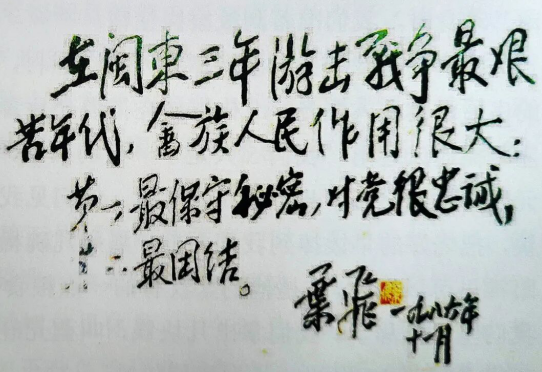 在闽東三年游击戰争最艰
苦年代，畲族人民作用很大：
第一，最保守秘密，对党很忠诚，
第二：最团结。
葉飛
一九八六年
十一月